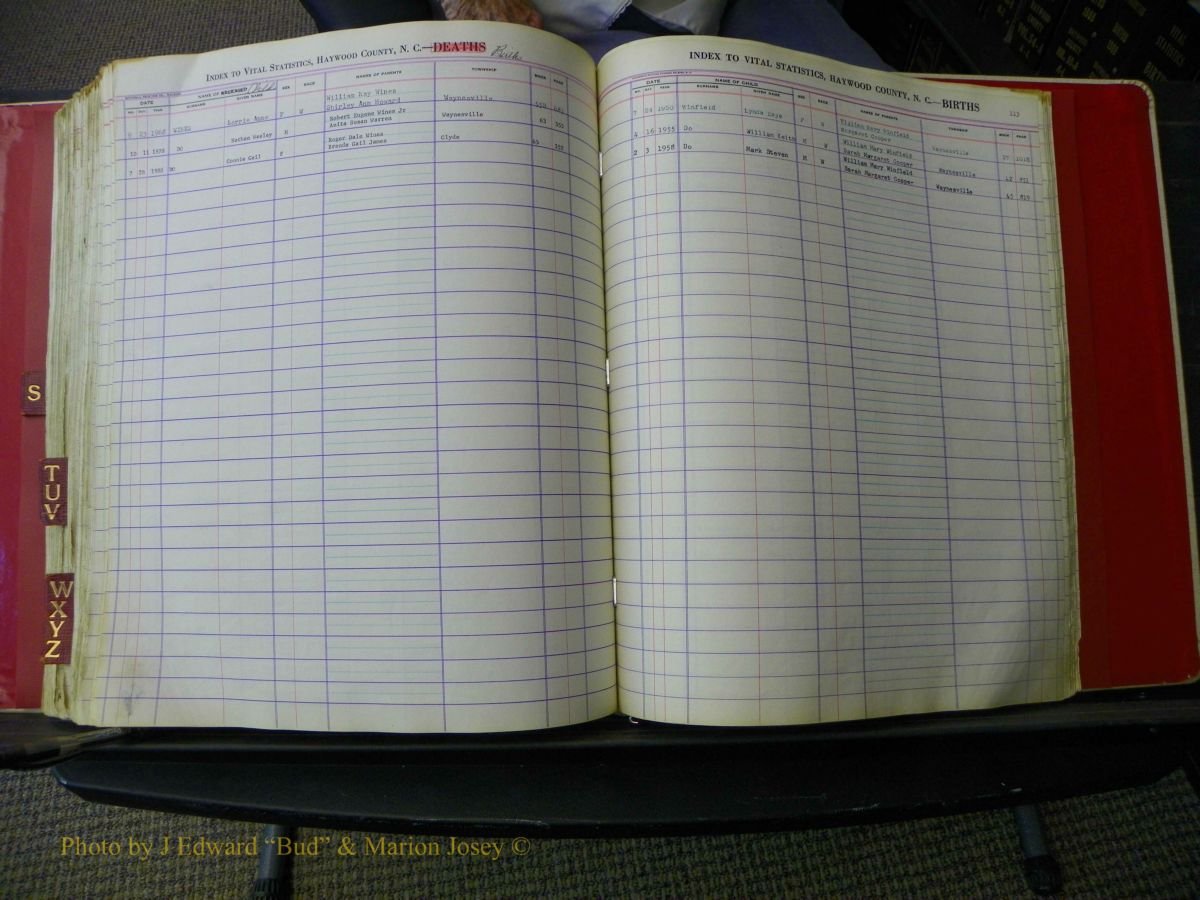 INDEX TO VITAL STATISTICS, HAYWOOD COUNTY, N. C.—DEATHS Births
DATE NAME OF DECEASED Child SEX RACE NAME OF PARENTS TOWNSHIP BOOK PAGE
MO. DAY YEAR SURNAME GIVEN NAME
23 1968 WINES Lorrie Anne F W William Ray Wines Waynesville
Shirley Ann Howard
10 11 1978 DO Nathan Wesley M Robert Eugene Wines Jr Waynesville 63 355
Anita Susan Warren
7 DO Connie Gail F Roger Dale Wines Clyde 65
Brenda Gail James
INDEX TO VITAL STATISTICS, HAYWOOD COUNTY, N. C.—BIRTHS
113
DATE NAME OF CHILD SEX RACE NAME OF PARENTS TOWNSHIP BOOK PAGE
MO. DAY YEAR SURNAME GIVEN NAME
7 24 1950 Winfield F W William Harv Winfield Waynesville 37
Margaret Cooper
4 16 1955 Do William Keith M W William Harv Winfield Waynesville 42
Sarah Margaret Cooper
2 3 1958 Do Mark Steven M W William Harv Winfield Waynesville 45 819
Sarah Margaret Cooper
S
T
U
V
W
X
Y
Z
Photo by J Edward “Bud” & Marion Josey ©